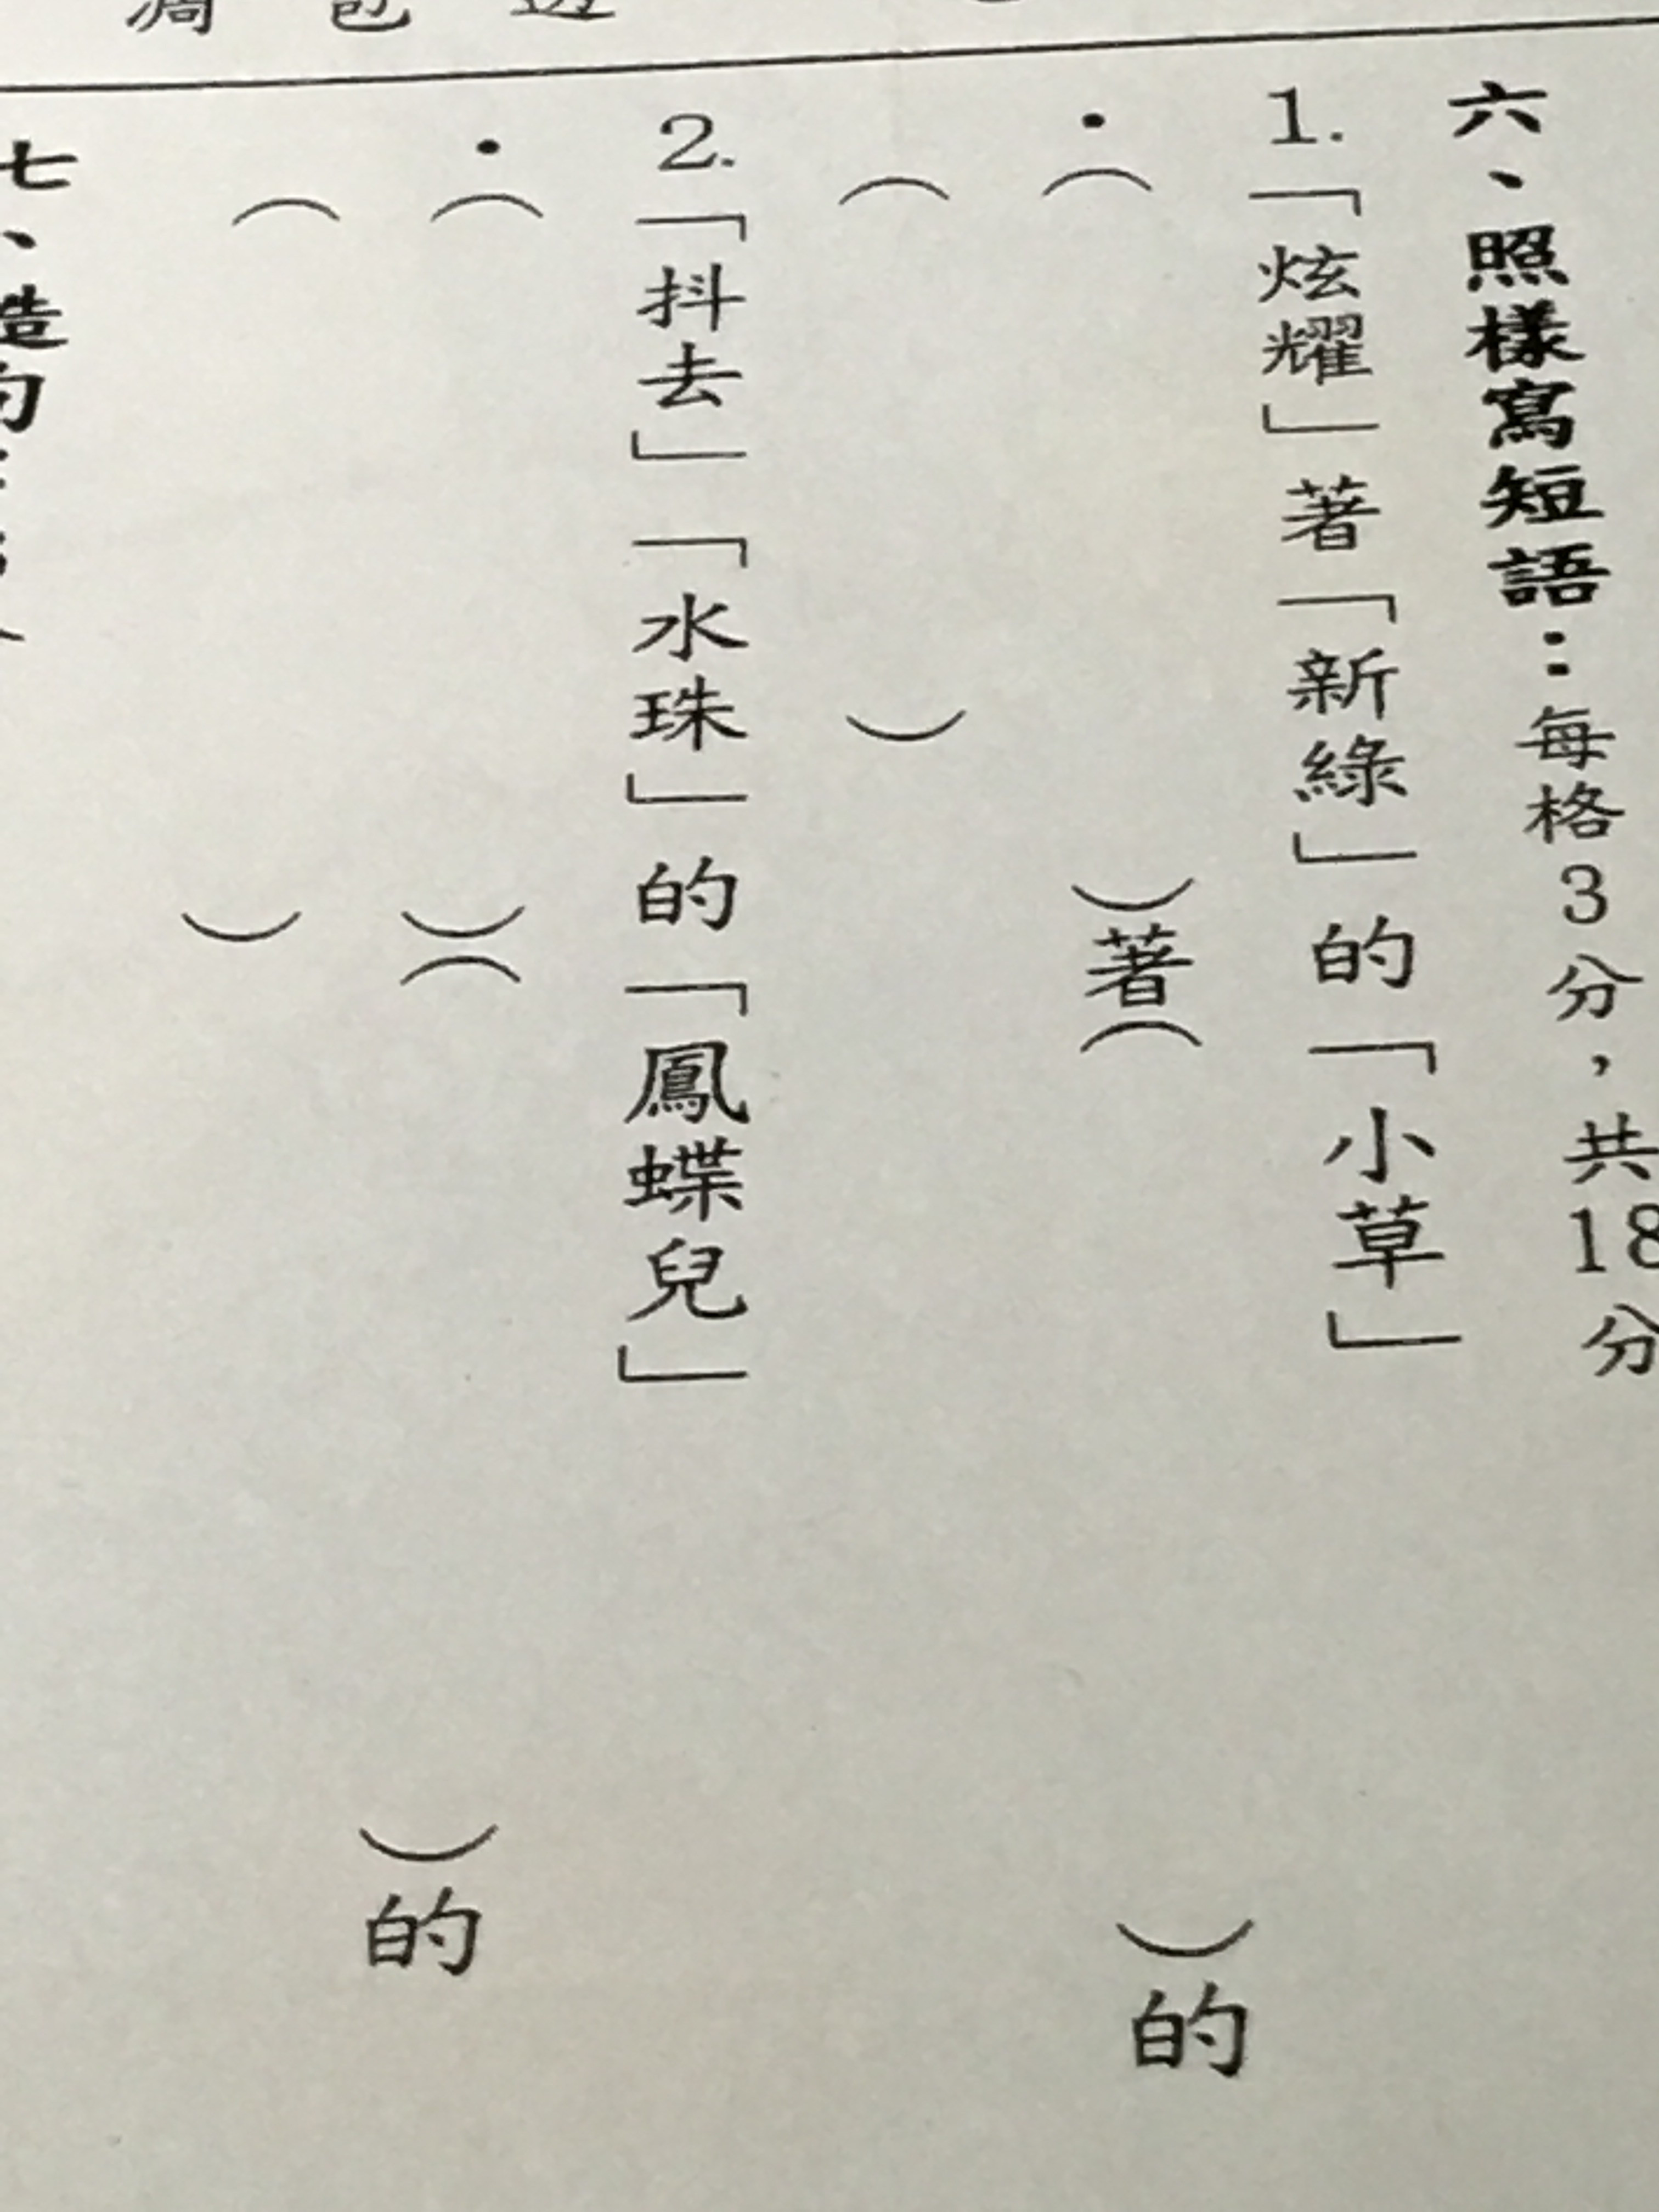 六、照樣寫短語：每格3分，共18分
1.「炫耀」著「新綠」的「小草」
•（　　　）著（　　　）的
（　　　）
2.「抖去」「水珠」的「鳳蝶兒」
•（　　　）（　　　）的
（　　　）
七、造句